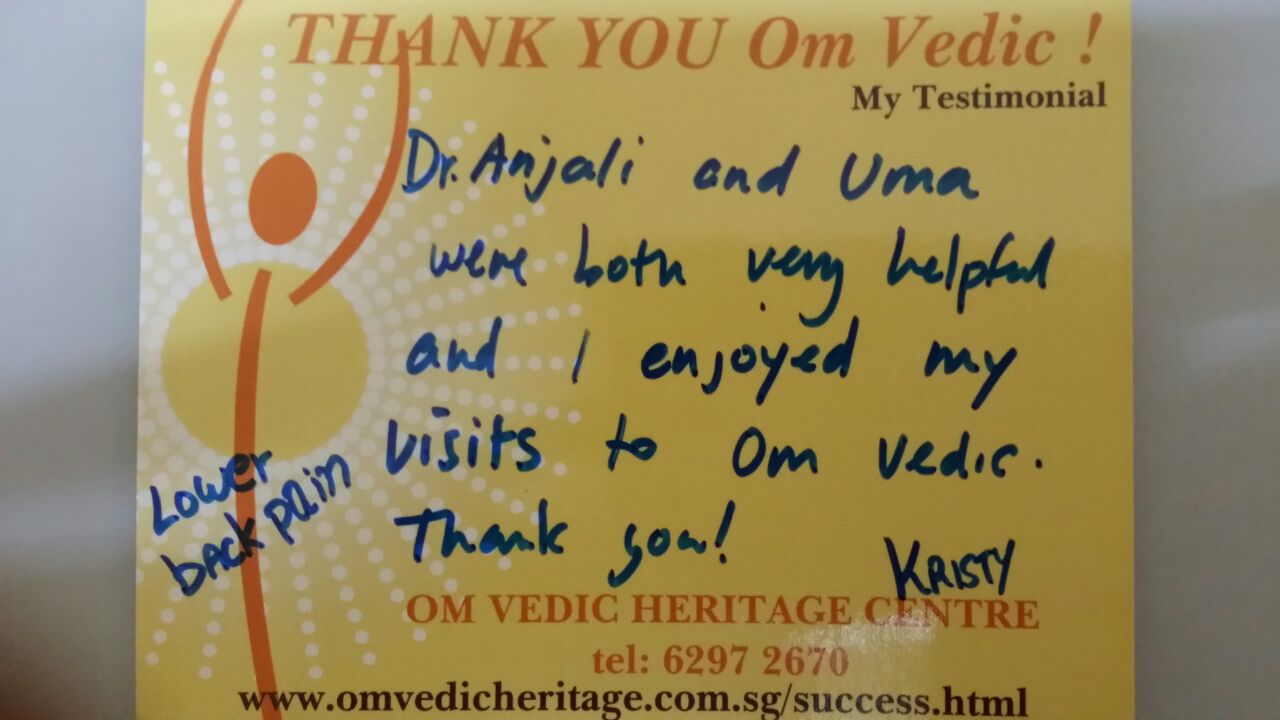 THANK YOU Om Vedic !
My Testimonial
Dr. Anjali and Uma
were both very helpful
and I enjoyed my
visits to Om Vedic.
Thank you!
KRISTY
Lower
back pain
OM VEDIC HERITAGE CENTRE
tel: 6297 2670
www.omvedicheritage.com.sg/success.html